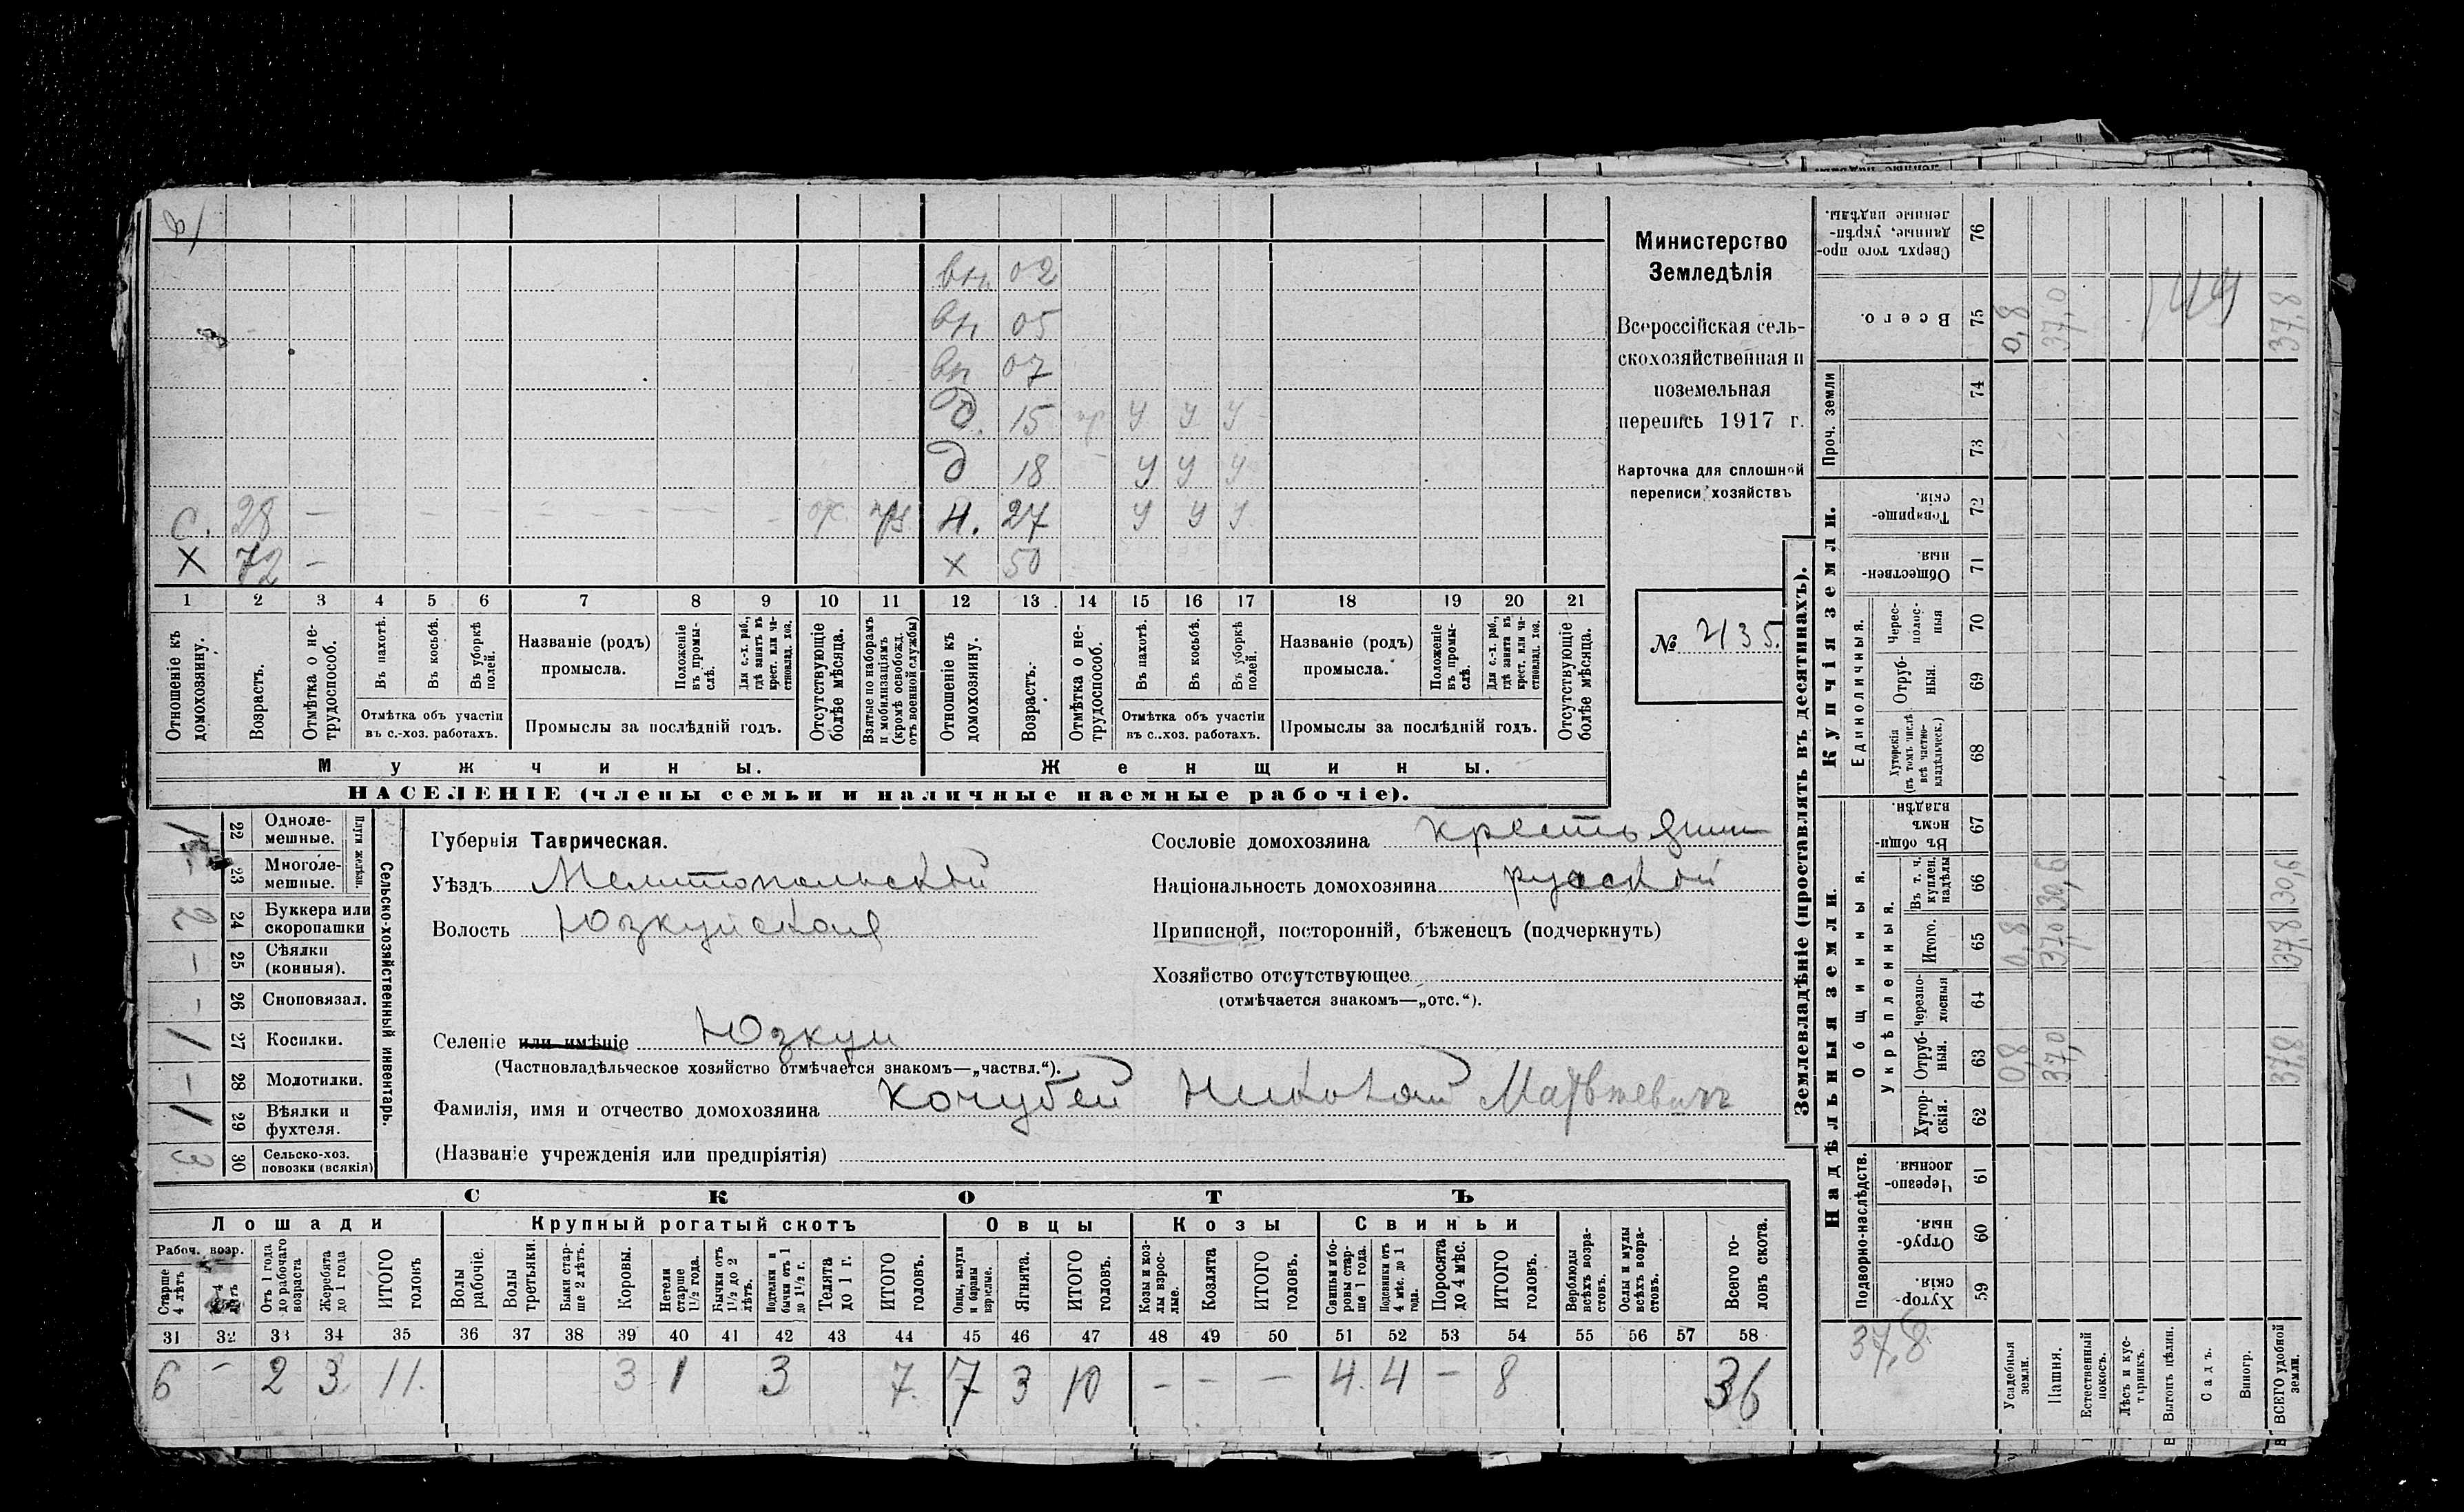 вн. 02
вн. 05
вн 07
д. 15 у у у
д 18 у у у
с. 28 – – – – – – – – н. 27 у у у
х 72 – х 50
1 2 3 4 5 6 7 8 9 10 11 12 13 14 15 16 17 18 19 20 21
Отношеніе къ домохозяину.
Возрастъ.
Отмѣтка о нетрудоспособ.
Въ пахотѣ.
Въ косьбѣ.
Въ уборкѣ полей.
Отмѣтка объ участіи въ с.-хоз. работахъ.
Названіе (родъ) промысла.
Положеніе въ промыслѣ.
Для с.-х. раб., гдѣ занятъ въ крест. или частновлад. хоз.
Промыслы за послѣдній годъ.
Отсутствующіе болѣе мѣсяца.
Взятые по наборамъ и мобилизаціямъ (кромѣ освобожд. отъ военной службы)
Отношеніе къ домохозяину.
Возрастъ.
Отмѣтка о нетрудоспособ.
Въ пахотѣ.
Въ косьбѣ.
Въ уборкѣ полей.
Отмѣтка объ участіи въ с..хоз. работахъ.
Названіе (родъ) промысла.
Положеніе въ промыслѣ.
Для с.-х. раб., гдѣ занята въ крест. или частновлад. хоз.
Промыслы за послѣдній годъ.
Отсутствующіе болѣе мѣсяца.
Мужчины.
Женщины.
НАСЕЛЕНІЕ (члены семьи и наличные наемные рабочіе).
Министерство
Земледѣлія
Всероссійская сель-
скохозяйственная и
поземельная
перепись 1917 г.
Карточка для сплошной
переписи хозяйствъ
№ 2135.
Сельско-хозяйственный инвентарь.
Плуги желѣзн.
22 Однолемешные. 1
23 Многолемешные.
24 Буккера или скоропашки 2
25 Сѣялки (конныя). –
26 Сноповязал. –
27 Косилки. 1
28 Молотилки. –
29 Вѣялки и фухтеля. 1
30 Сельско-хоз. повозки (всякія) 3
Губернія Таврическая.
Уѣздъ Мелитопольский
Волость Юзкуйская
Селеніе или имѣніе Юзкуи
(Частновладѣльческое хозяйство отмѣчается знакомъ—„частвл.“).
Фамилія, имя и отчество домохозяина Кочубей Николай Матвѣевичъ
(Названіе учрежденія или предпріятія)
Сословіе домохозяина крестьянин
Національность домохозяина русский
Приписной, посторонній, бѣженецъ (подчеркнуть)
Хозяйство отсутствующее
(отмѣчается знакомъ—„отс.“).
СКОТЪ
Лошади Крупный рогатый скотъ Овцы Козы Свиньи
Рабоч. возр.
Старше 4 лѣтъ
Отъ 1 года до рабочаго возраста
Жеребята до 1 года
ИТОГО головъ
Волы рабочіе.
Волы третьяки.
Быки старше 2 лѣтъ.
Коровы.
Нетели старше 1½ года.
Бычки отъ 1½ до 2 лѣтъ.
Подтелки и бычки отъ 1 до 1½ г.
Телята до 1 г.
ИТОГО головъ.
Овцы, валухи и бараны взрослые.
Ягнята.
ИТОГО головъ.
Козы и козлы взрослые.
Козлята
ИТОГО головъ.
Свиньи и боровы старше 1 года.
Подсвинки отъ 4 мѣс. до 1 года.
Поросята до 4 мѣс.
ИТОГО головъ.
Верблюды всѣхъ возрастовъ.
Ослы и мулы всѣхъ возрастовъ.
Всего головъ скота.
31 32 33 34 35 36 37 38 39 40 41 42 43 44 45 46 47 48 49 50 51 52 53 54 55 56 57 58
6 – 2 3 11. 3 1 3 7. 7 3 10 – – – 4. 4 – 8 36
Землевладѣніе (проставлять въ десятинахъ).
Купчія земли.
Надѣльныя земли.
Сверхъ того проданные, укрѣпленные надѣлы. 76
Всего. 75 0,8 37,0 37,8
Проч. земли 74 73
Товарищескія. 72
Общественныя. 71
Единоличныя.
Чересполосныя 70
Отрубныя. 69
Хуторскія (въ томъ числѣ всѣ частновладѣльческ.) 68
Общинныя.
Въ общинномъ владѣн. 67
Укрѣпленныя.
Въ т. ч. куплен. надѣлы 66 30,6 30,6
Итого. 65 0,8 37,0 37,8
Черезполосныя 64
Отрубныя. 63 0,8 37,0 37,8
Хуторскія. 62
Подворно-наслѣдств.
Черезполосныя. 61
Отрубныя. 60
Хуторскія. 59
37,8
Усадебныя земли.
Пашня.
Естественный покосъ.
Лѣсъ и кустарникъ.
Выгонъ цѣлин.
Садъ.
Виногр.
ВСЕГО удобной земли.